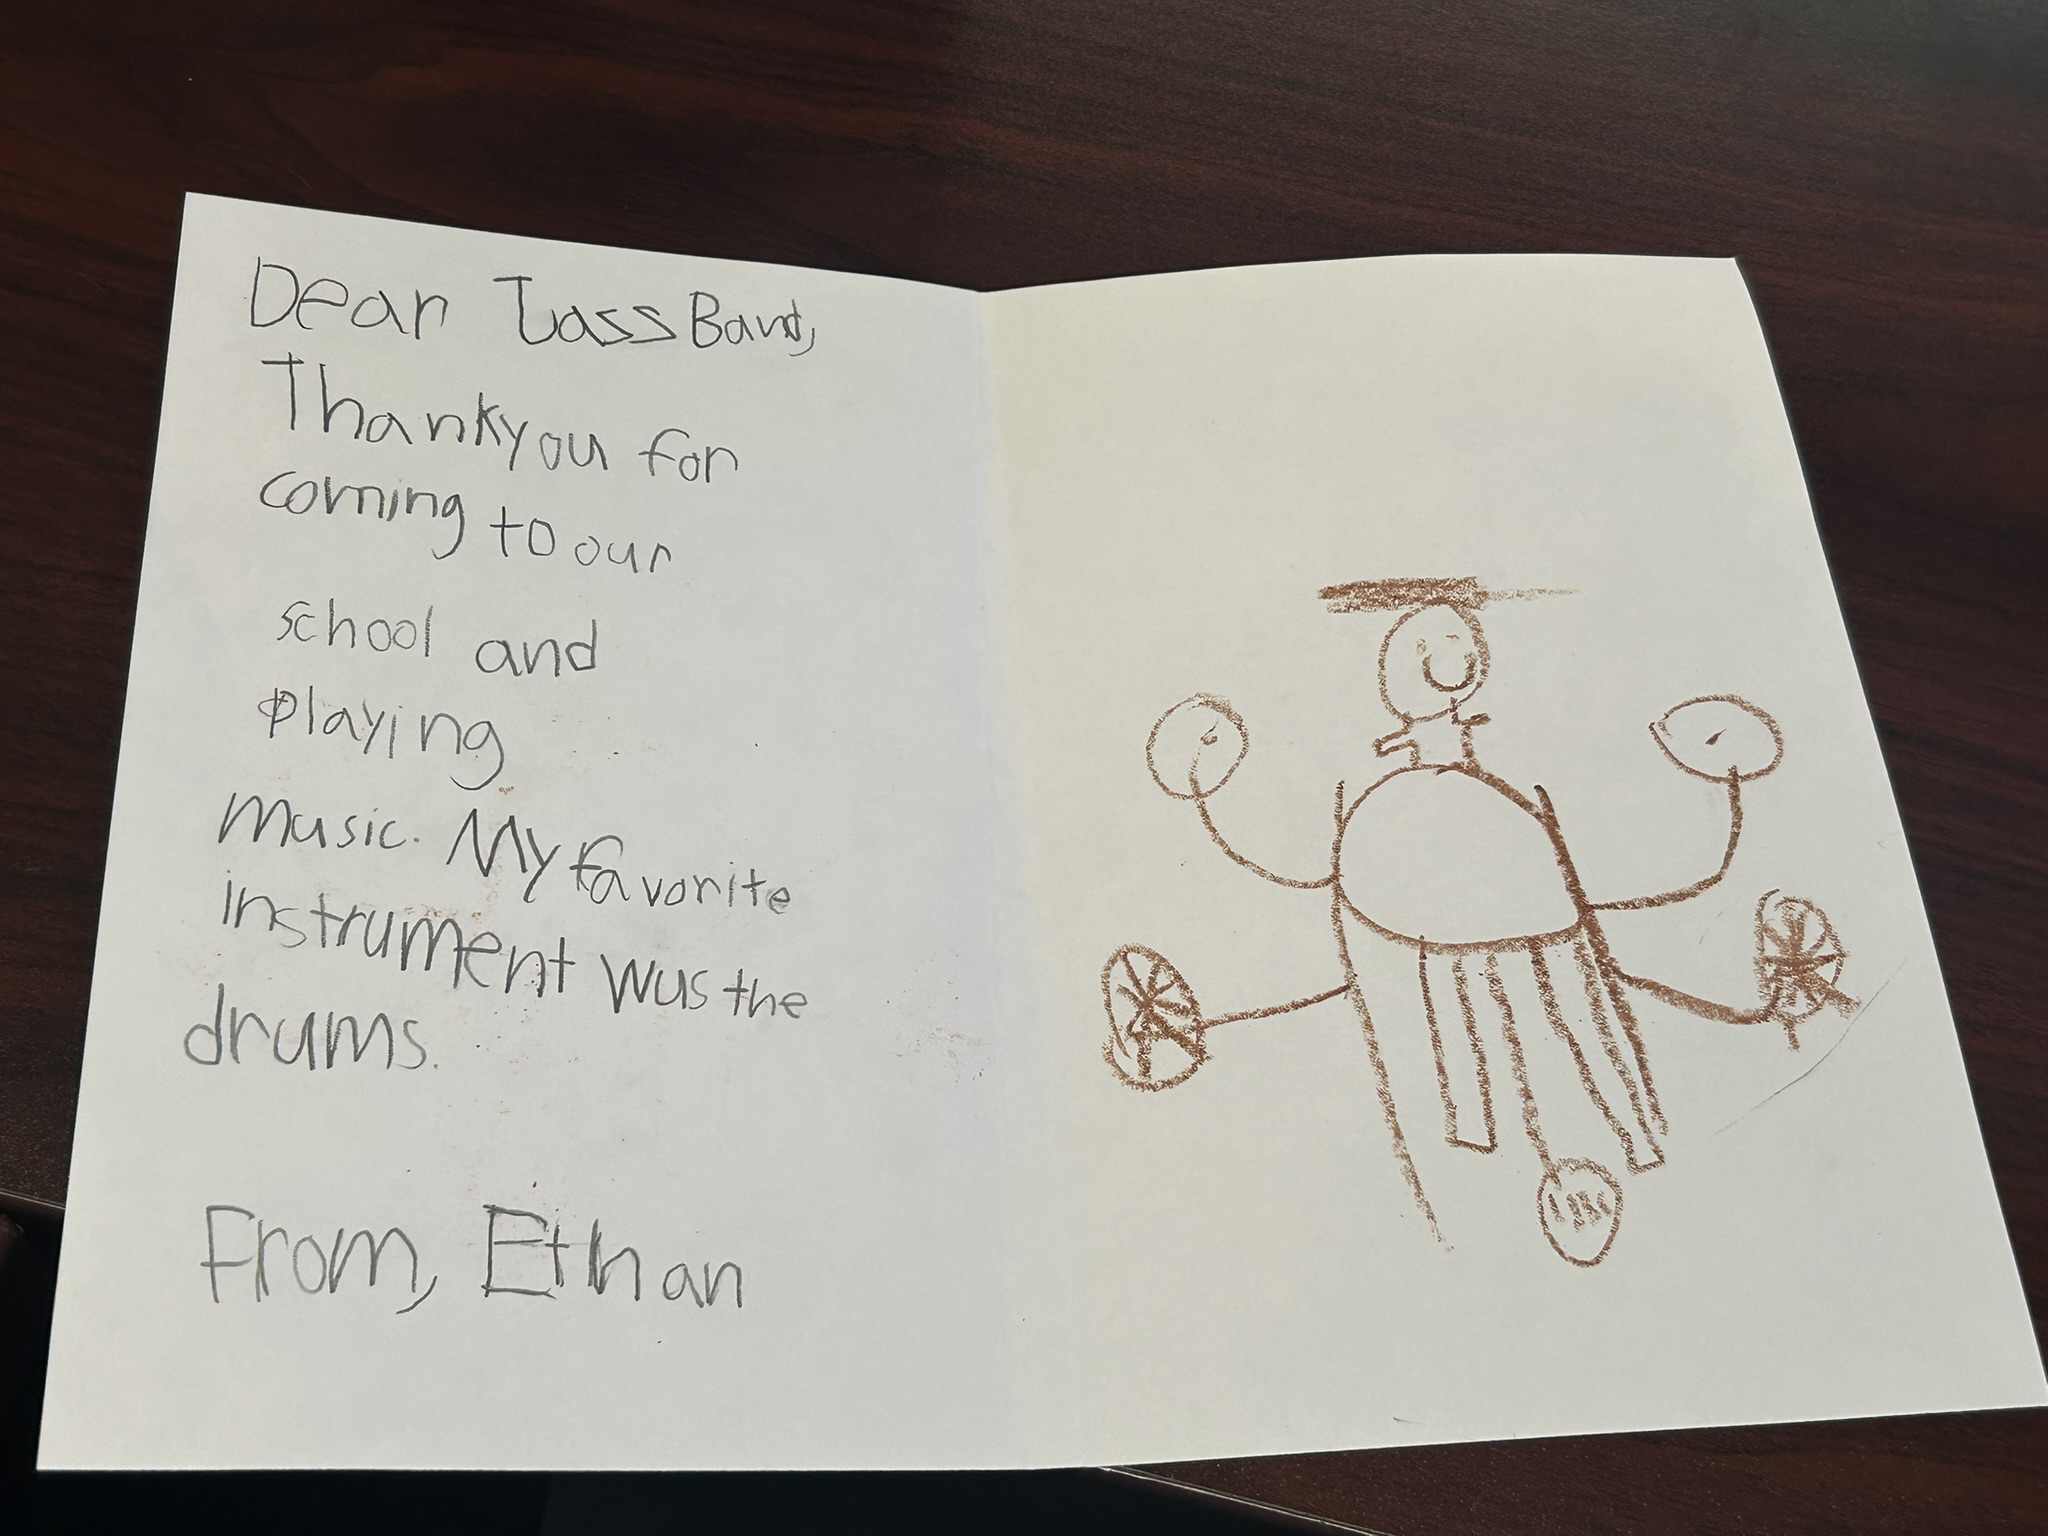 Dear Jass Band,
Thankyou for
coming to our
school and
playing
music. My favorite
instrument wus the
drums.
From, Ethan